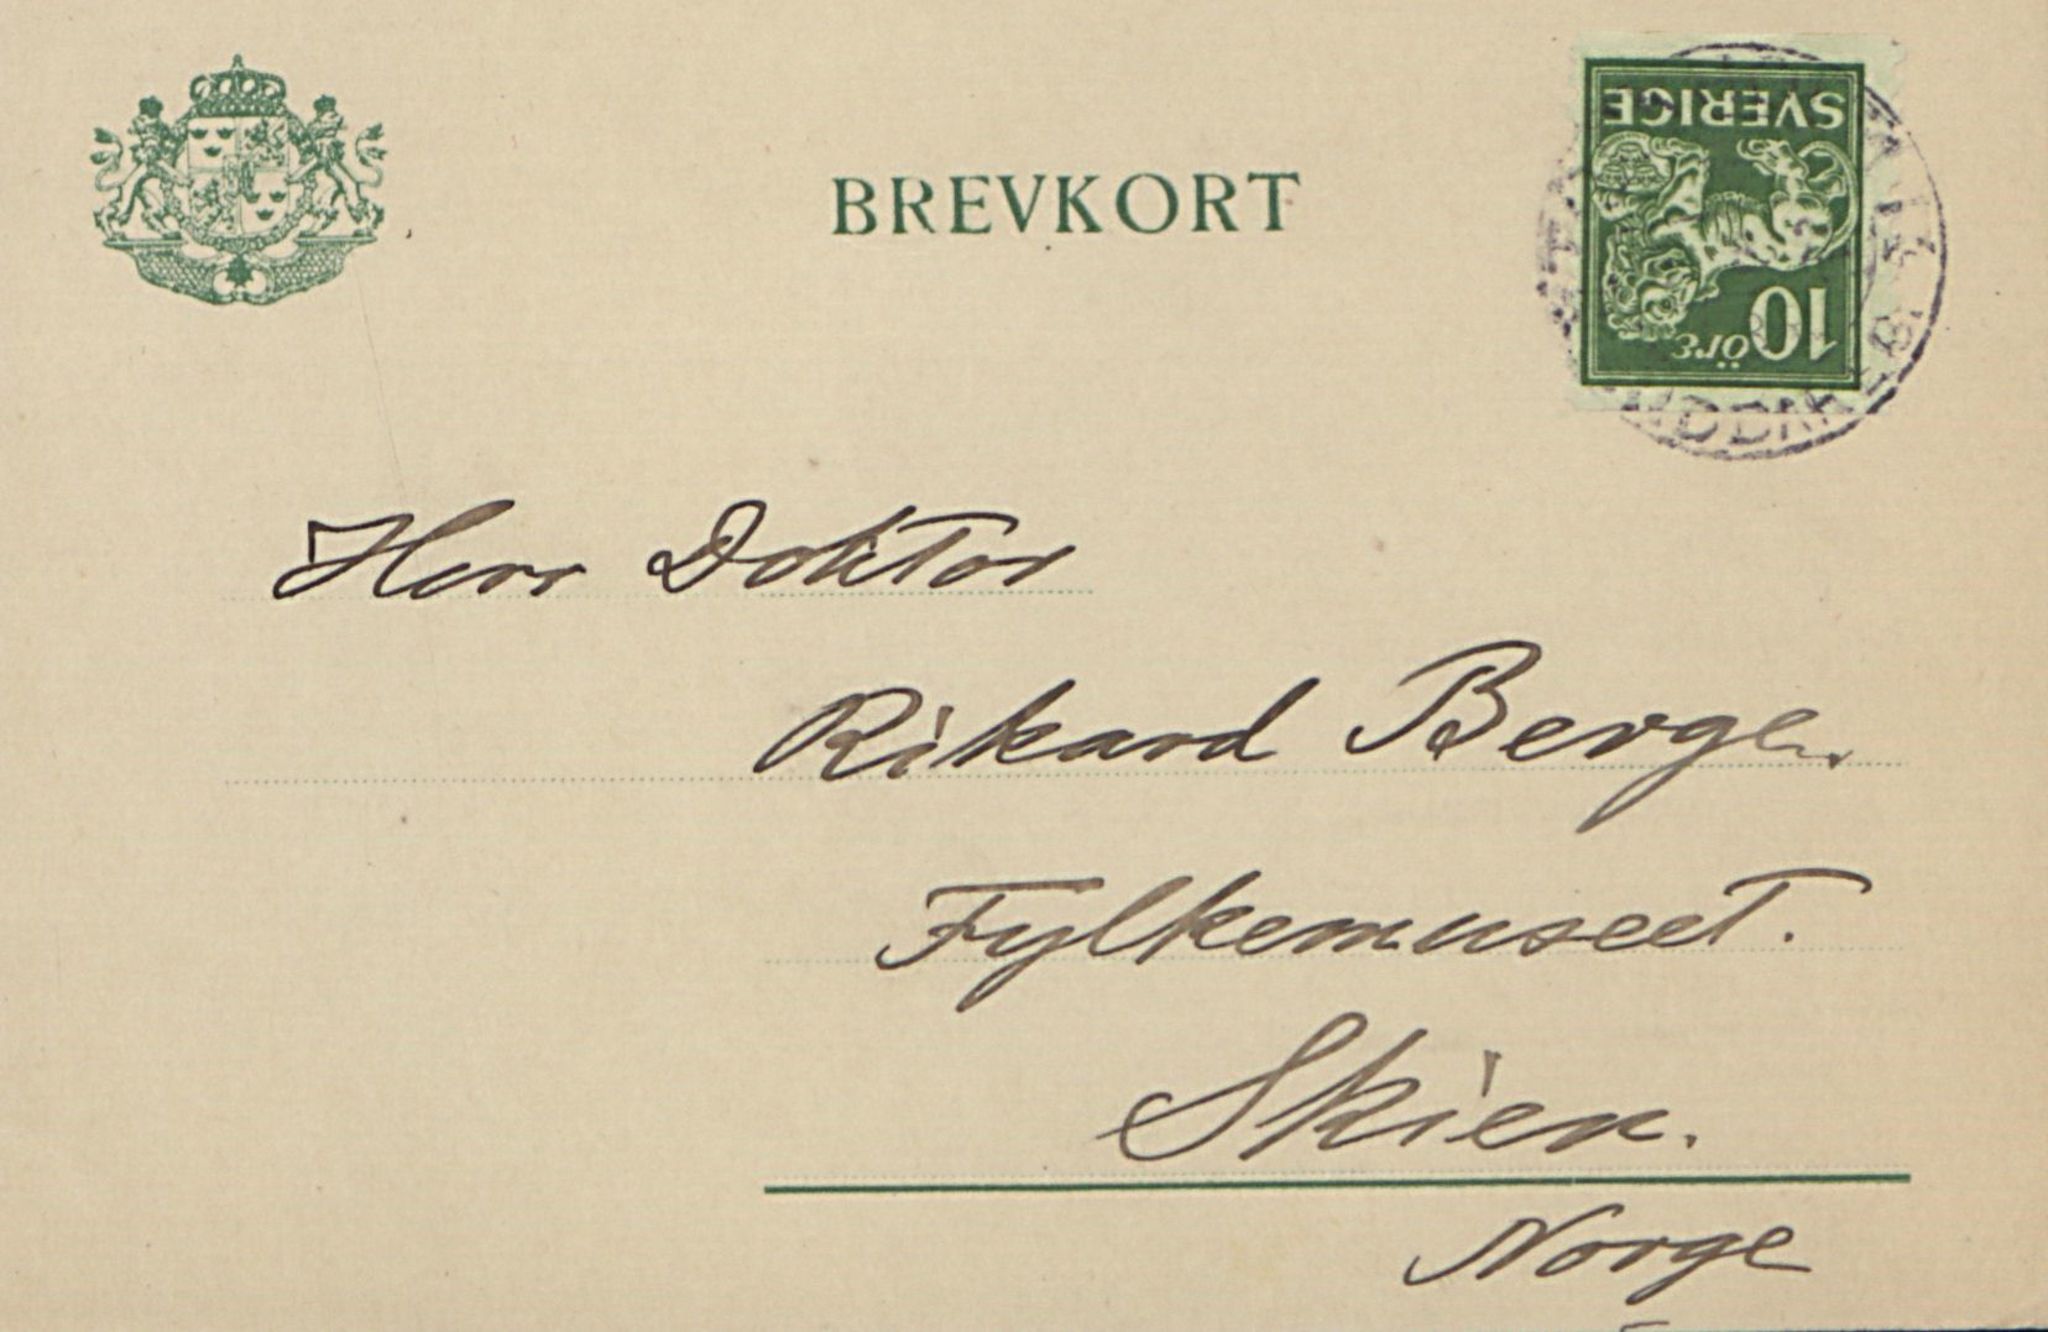 BREVKORT
SVERIGE
10 öre
Herr Doktor
Rikard Berge.
Fylkemuseet.
Skien.
Norge